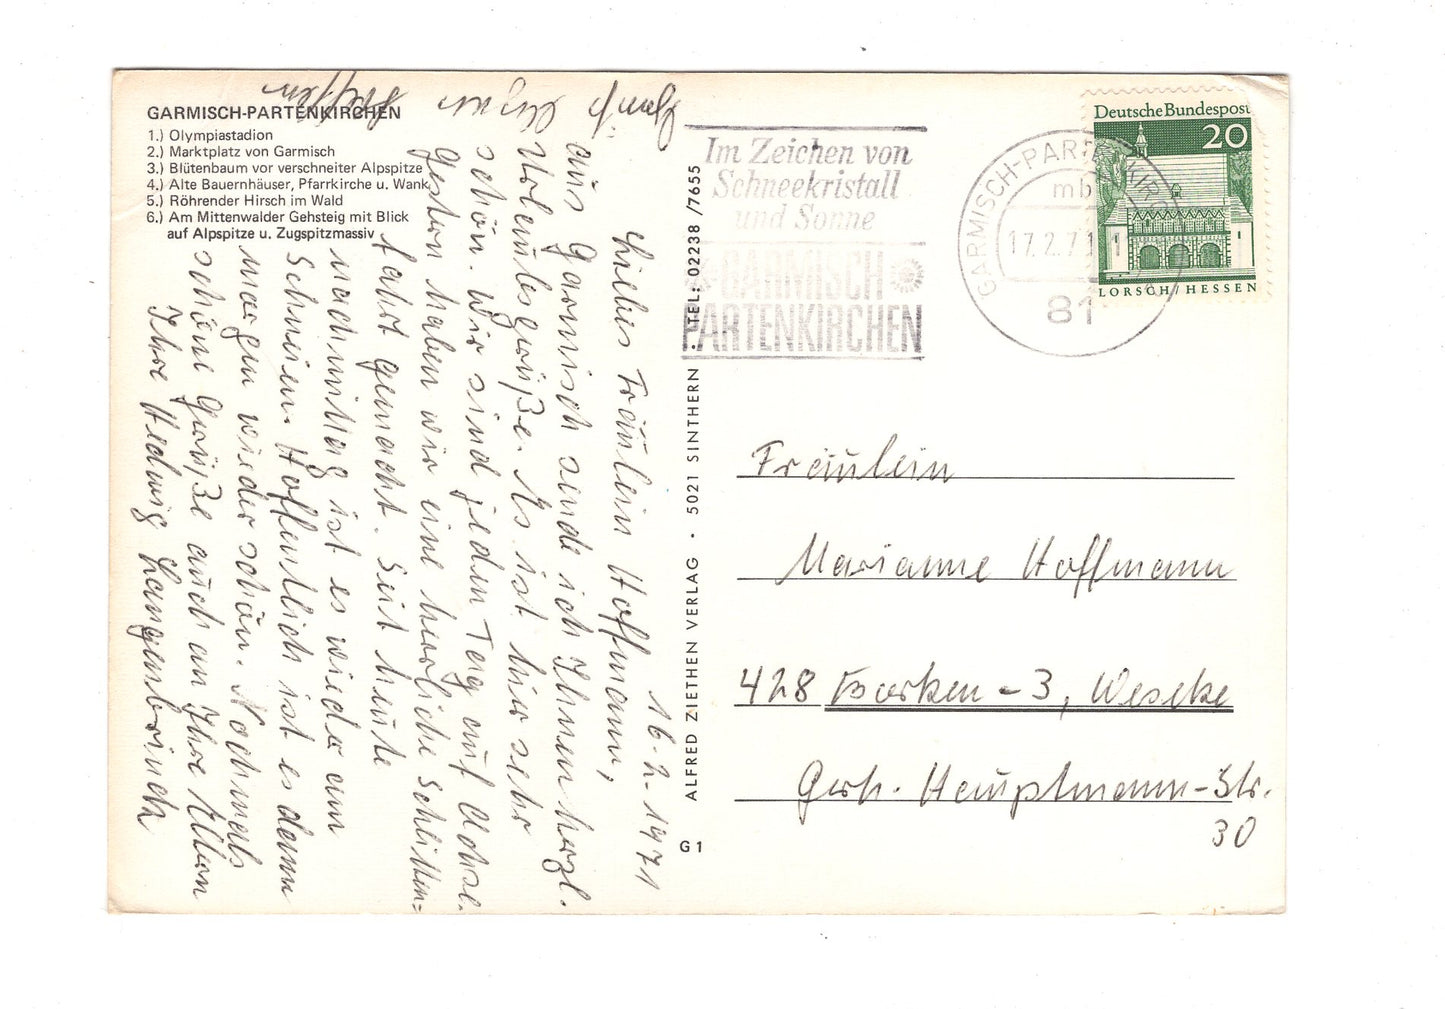 GARMISCH-PARTENKIRCHEN
1.) Olympiastadion
2.) Marktplatz von Garmisch
3.) Blütenbaum vor verschneiter Alpspitze
4.) Alte Bauernhäuser, Pfarrkirche u. Wank
5.) Röhrender Hirsch im Wald
6.) Am Mittenwalder Gehsteig mit Blick
auf Alpspitze u. Zugspitzmassiv
16-2-1971
Liebes Fräulein Hoffmann,
aus Garmisch sende ich Ihnen herzl.
Urlaubsgrüße. Es ist hier sehr
schön. Wir sind jeden Tag auf Achse.
Gestern haben wir eine herrliche Schlitten=
fahrt gemacht. Seit heute
nachmittag ist es wieder am
Schneien. Hoffentlich ist es dann
morgen wieder schön. Nochmals
schöne Grüße auch an Ihre Eltern
Ihre Hedwig Langenbrinck
ALFRED ZIETHEN VERLAG · 5021 SINTHERN · TEL: 02238 /7655
G 1
Im Zeichen von
Schneekristall
und Sonne
GARMISCH
PARTENKIRCHEN
GARMISCH-PARTENKIRCHEN
mb
17.2.71
81
Deutsche Bundespost
20
LORSCH / HESSEN
Fräulein
Marianne Hoffmann
428 Borken-3, Weseke
Gerh. Hauptmann-Str.
30